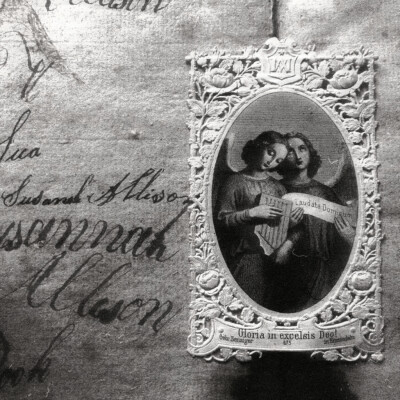 Allason
Sua
Susanah Allison
Susannah
Allason
Book
Laudate Domi
Gloria in excelsis Deo!
485